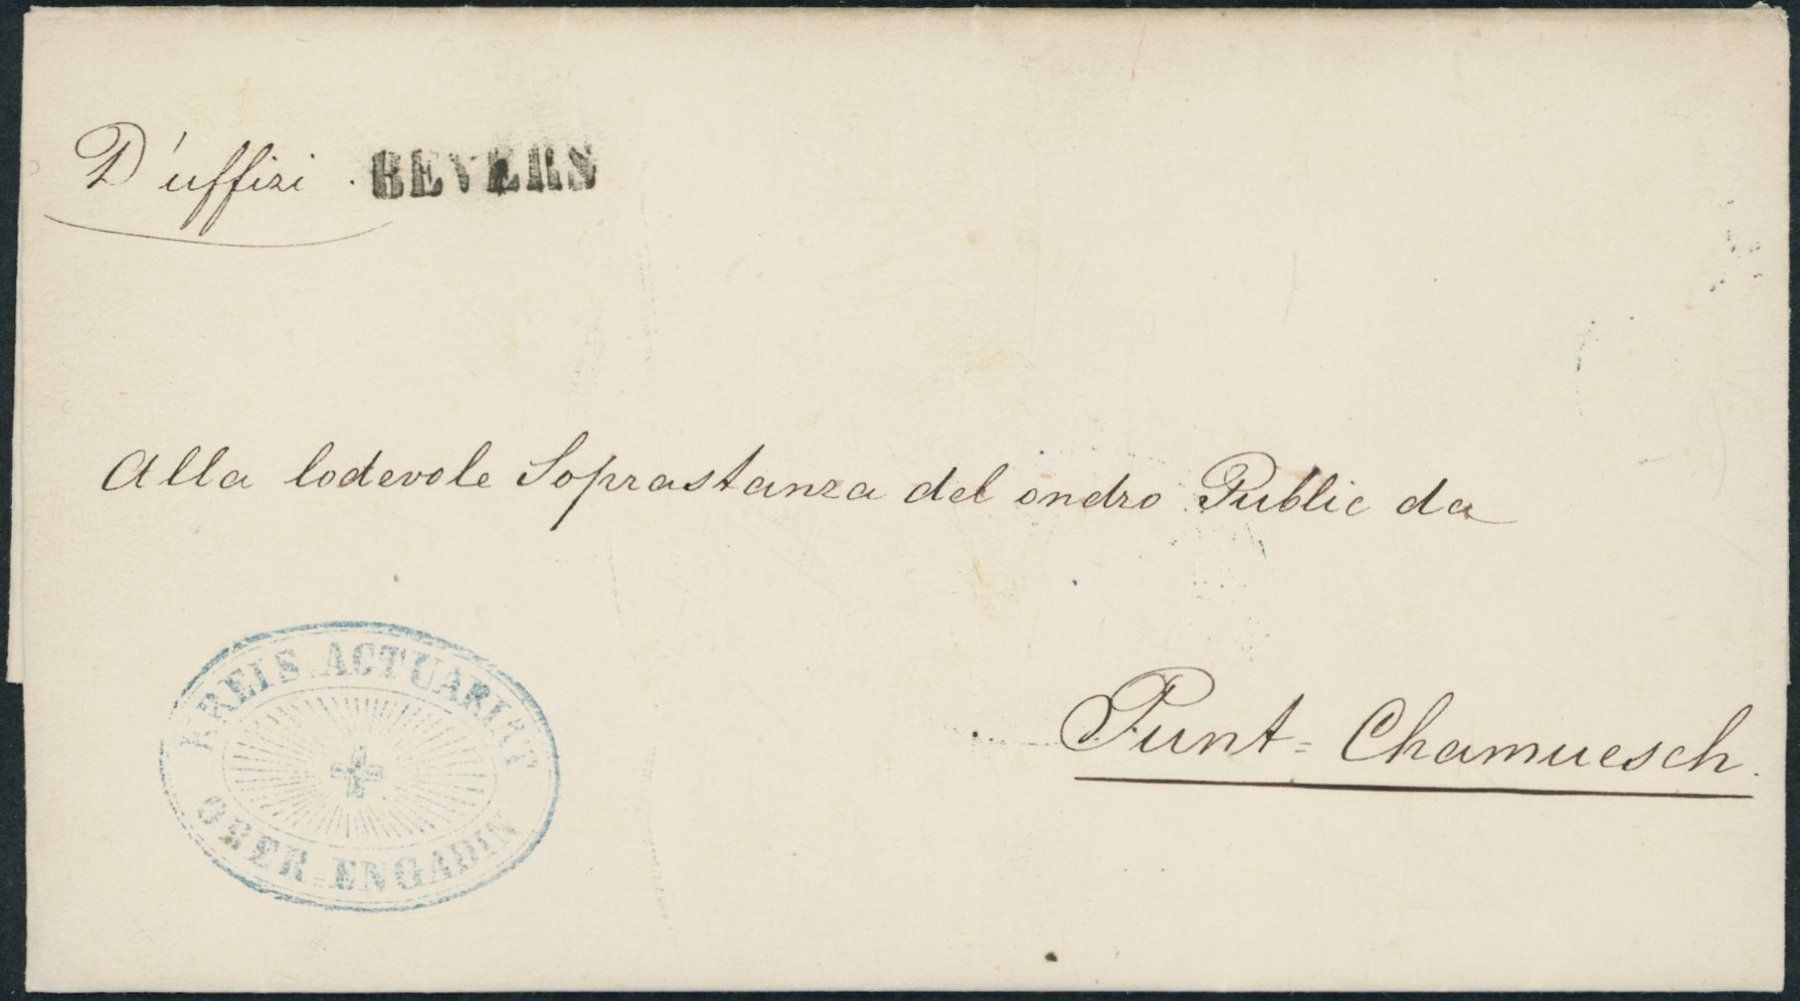 D'uffizi . BEVERS
Alla lodevole Soprastanza del ondro Public da
Punt-Chamuesch.
KREIS ACTUARIAT
OBER ENGADIN